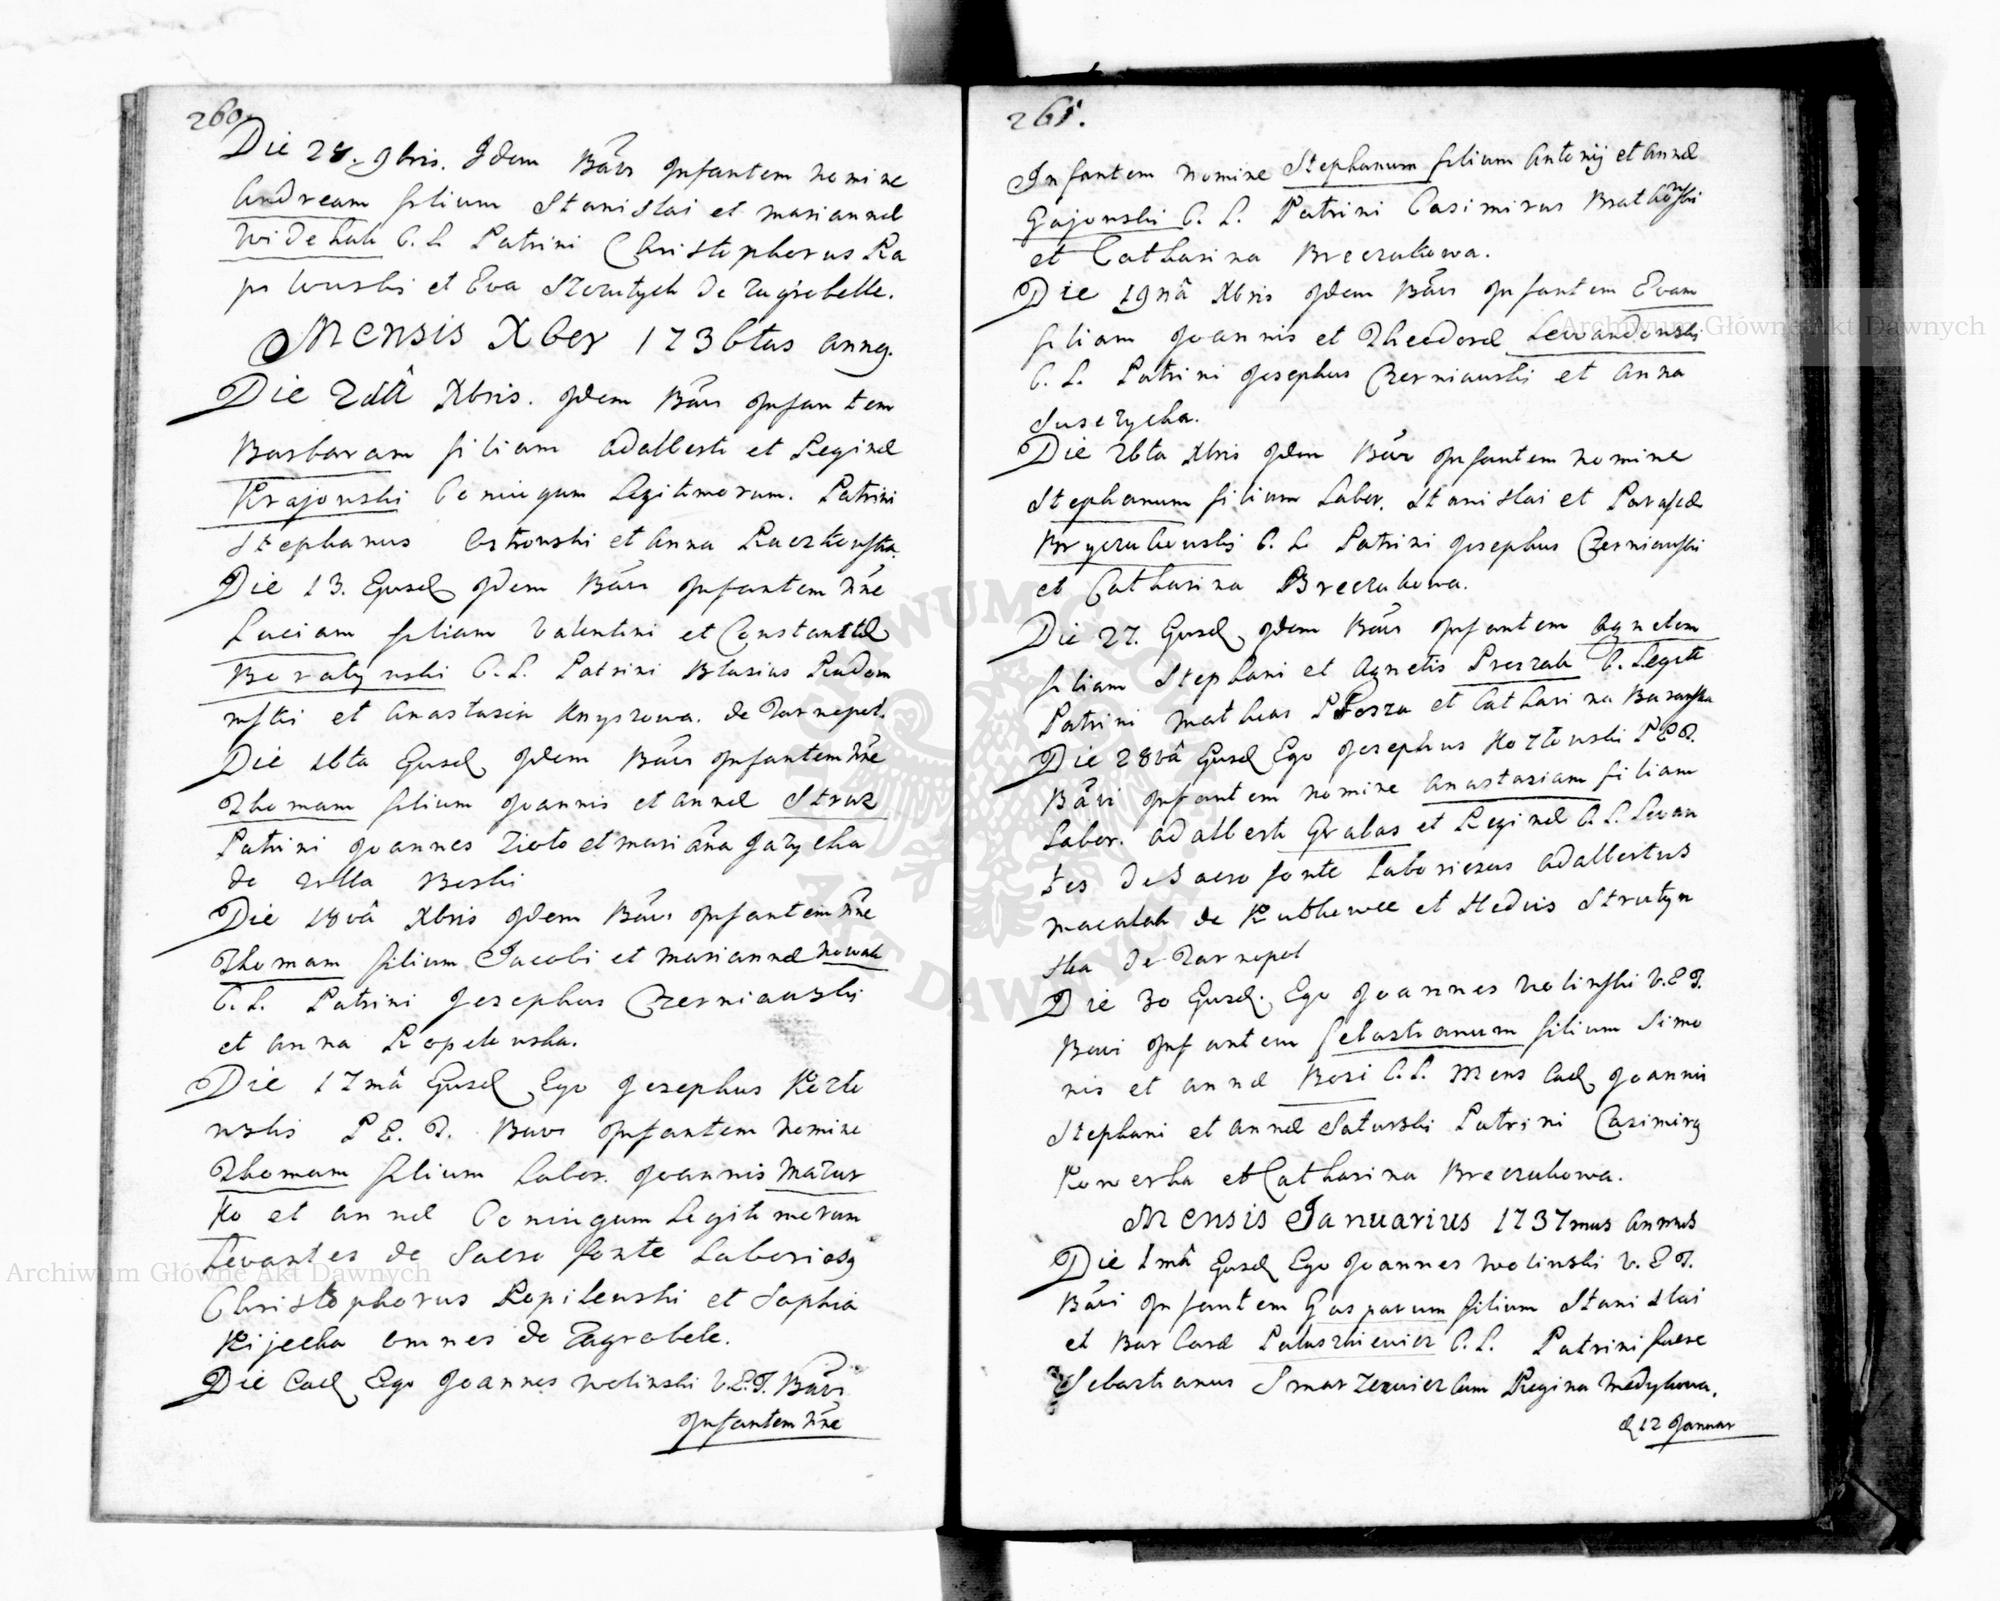 260.
Die 28. 9bris. Idem Bāvi Infantem nomine
Andream filium Stanislai et Mariannæ
Widelak C. L. Patrini Christophorus Ra
pilewski et Eva de Zagrobelle.
Mensis Xber 1736tus annq.
Die 2dâ Xbris. Idem Bāvi Infantem
Barbaram filiam Adalberti et Reginæ
Krajowski Coniugum Legitimorum. Patrini
Stephanus Ostrowski et Anna Raczkowska.
Die 13. Eiusd. Idem Bāvi Infantem nñe
Luciam filiam Valentini et Constantiæ
Boratynski C. L. Patrini Blasius Radom
inski et Anastasia Knyszowa. de Tarnopol.
Die 16ta Eiusd. Idem Bāvi Infantem nñe
Thomam filium Joannis et Annæ Struz
Patrini Joannes Zioło et Mariāna Jazycha
de villa Beski
Die 18vâ Xbris Idem Bāvi Infantem nñe
Thomam filium Jacobi et Mariannæ Nowak
C. L. Patrini Josephus Czerniawski
et Anna Ropelewska.
Die 17mâ Eiusd Ego Josephus Kozło
wski P. E. T. Bavi Infantem nomine
Thomam filium Labor. Joannis Mazur
ko et Annæ Coniugum Legitimorum
Levantes de Sacro fonte Laboriosq
Christophorus Ropilewski et Sophia
Kijecka omnes de Zagrobele.
Die Ead Ego Joannes Wolinski V.E.T. Bāvi
Infantem nñe
261.
Infantem nomine Stephanum filium Antonij et Annæ
Gajowski C. L. Patrini Casimirus Bratkowski
et Catharina Breczukowa.
Die 19nâ Xbris Idem Bāvi Infantem Evam
filiam Joannis et Theodoræ Lewandowski
C. L. Patrini Josephus Czerniawski et Anna
Susczycha.
Die 26ta Xbris Idem Bāvi Infantem nomine
Stephanum filium Labor. Stanislai et Parasce
Bryczukowski C. L. Patrini Josephus Czerniawski
et Catharina Breczukowa.
Die 27. Eiusd. Idem Bāvi Infantem Agnetem
filiam Stephani et Agnetis Proszak C. Legiti
Patrini Mathias et Catharina Baranska
Die 28vâ Eiusd Ego Josephus Kozłowski P.E.T.
Bāvi Infantem nomine Anastasiam filiam
Labor. Adalberti Grabas et Reginæ C. L. Levan
tes de Sacro fonte Laboriosus Adalbertus
Macalak de Kutkowce et Hedvis Strutyn
ska de Tarnopol
Die 30 Eiusd. Ego Joannes Wolinski V.E.T.
Bavi Infantem Sebastianum filium Simo
nis et Annæ Bosi C. L. Mens Ead Joannis
Stephani et Annæ Saturski Patrini Casimirq
Kowerka et Catharina Breczukowa.
Mensis Januarius 1737mus annus
Die 1mâ Eiusd Ego Joannes Wolinski V. E. T.
Bāvi Infantem Gasparum filium Stanislai
et Barbaræ Patuszkiewicz C. L. Patrini fuere
Sebastianus Smarzewicz cum Regina Medykowa.
d 12 Januar
Archiwum Główne Akt Dawnych
Archiwum Główne Akt Dawnych
ARCHIWUM GŁÓWNE
AKT DAWNYCH